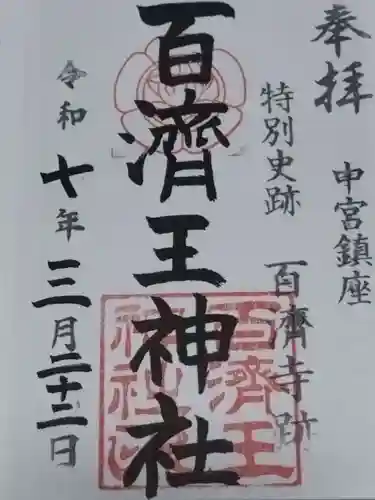 奉拝
申宮鎮座
特別史跡
百濟寺跡
百濟王神社
令和七年三月二十二日
百濟王
神社印